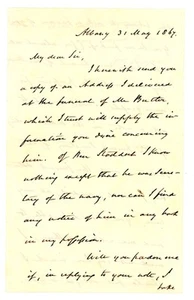 Albany 31 May 1867.
My dear Sir,
I herewith send you
a copy of an Address I delivered
at the funeral of Mr Butler,
which I trust will supply the in-
formation you desire concerning
him. Of Ben Stoddert I know
nothing except that he was Secre-
tary of the navy, nor can I find
any notice of him in any book
in my possession.
Will you pardon me
if, in replying to your note, I
take